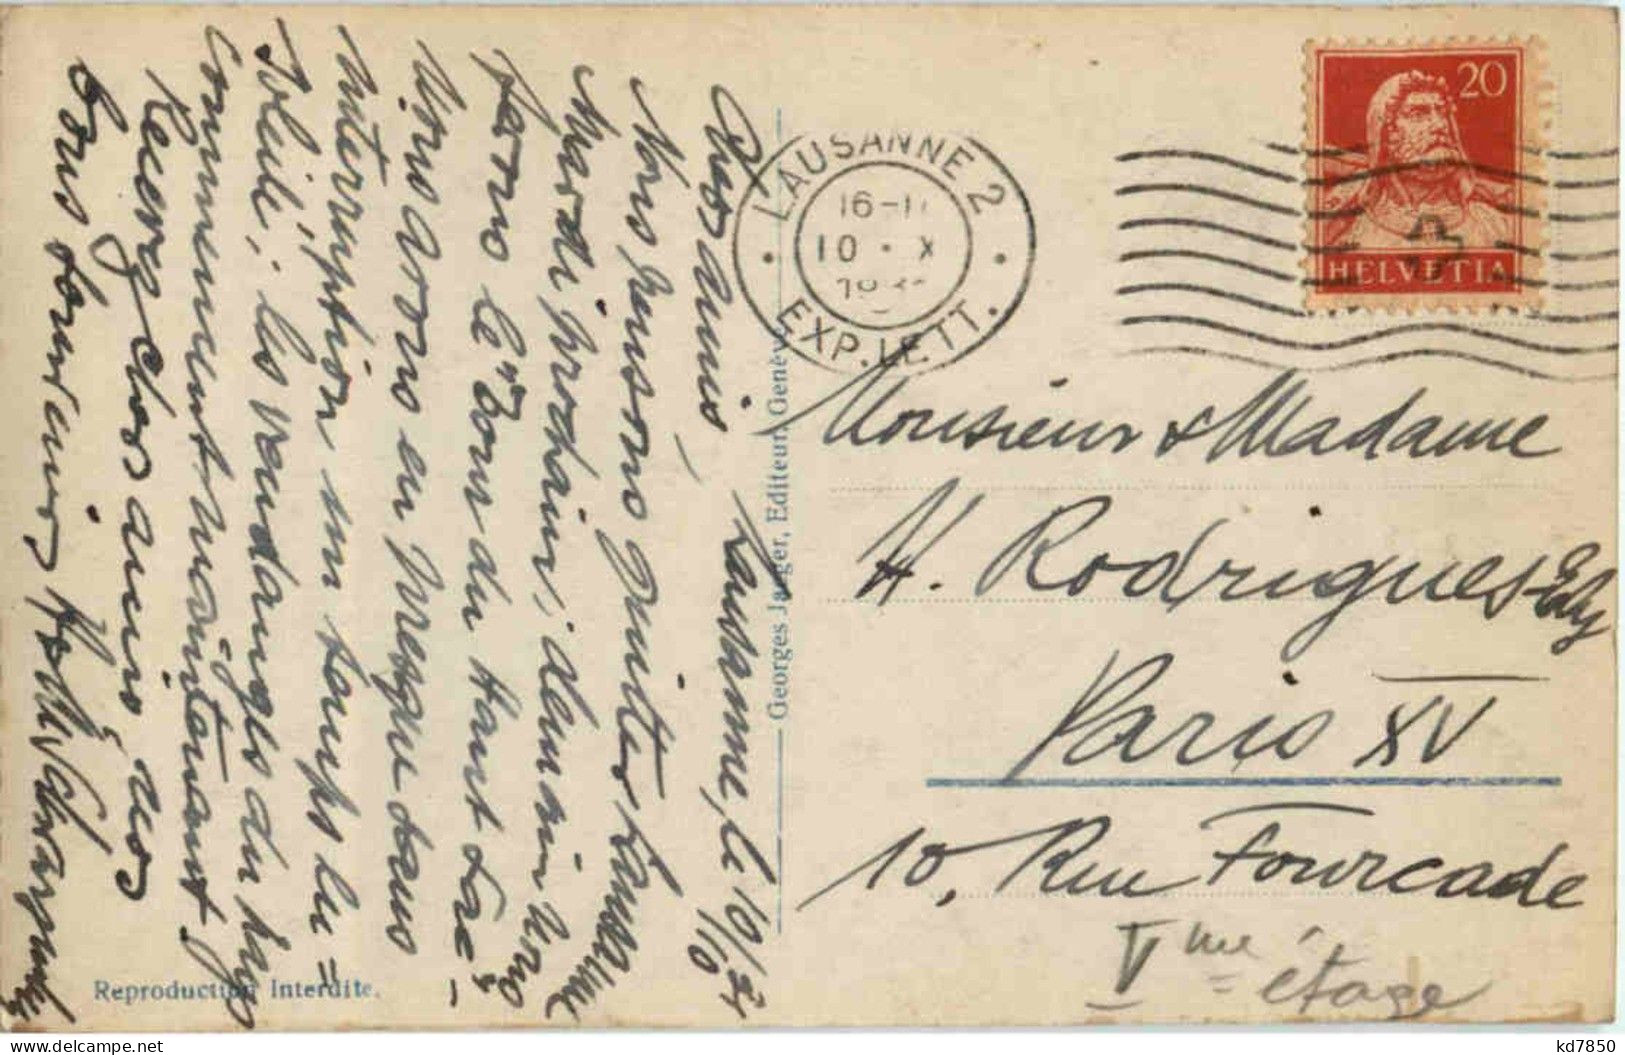 Chers amis,
Lausanne, le 10/10
Nous pensons quitter Lausanne
Mardi prochain; demain nous
ferons le "Tour du Haut Lac"
Nous avons eu presque sans
interruption un temps en =
soleillé; les vendanges du pays
commencent maintenant
Recevez chers amis, nos
bons souvenirs
LAUSANNE 2
16-1
10 · X
EXP. LETT.
20
HELVETIA
Monsieur & Madame
H. Rodrigues-Ely
Paris XV
10, Rue Fourcade
Vme étage
Georges Jaeger, Editeur, Genève
Reproduction Interdite.
kd7850